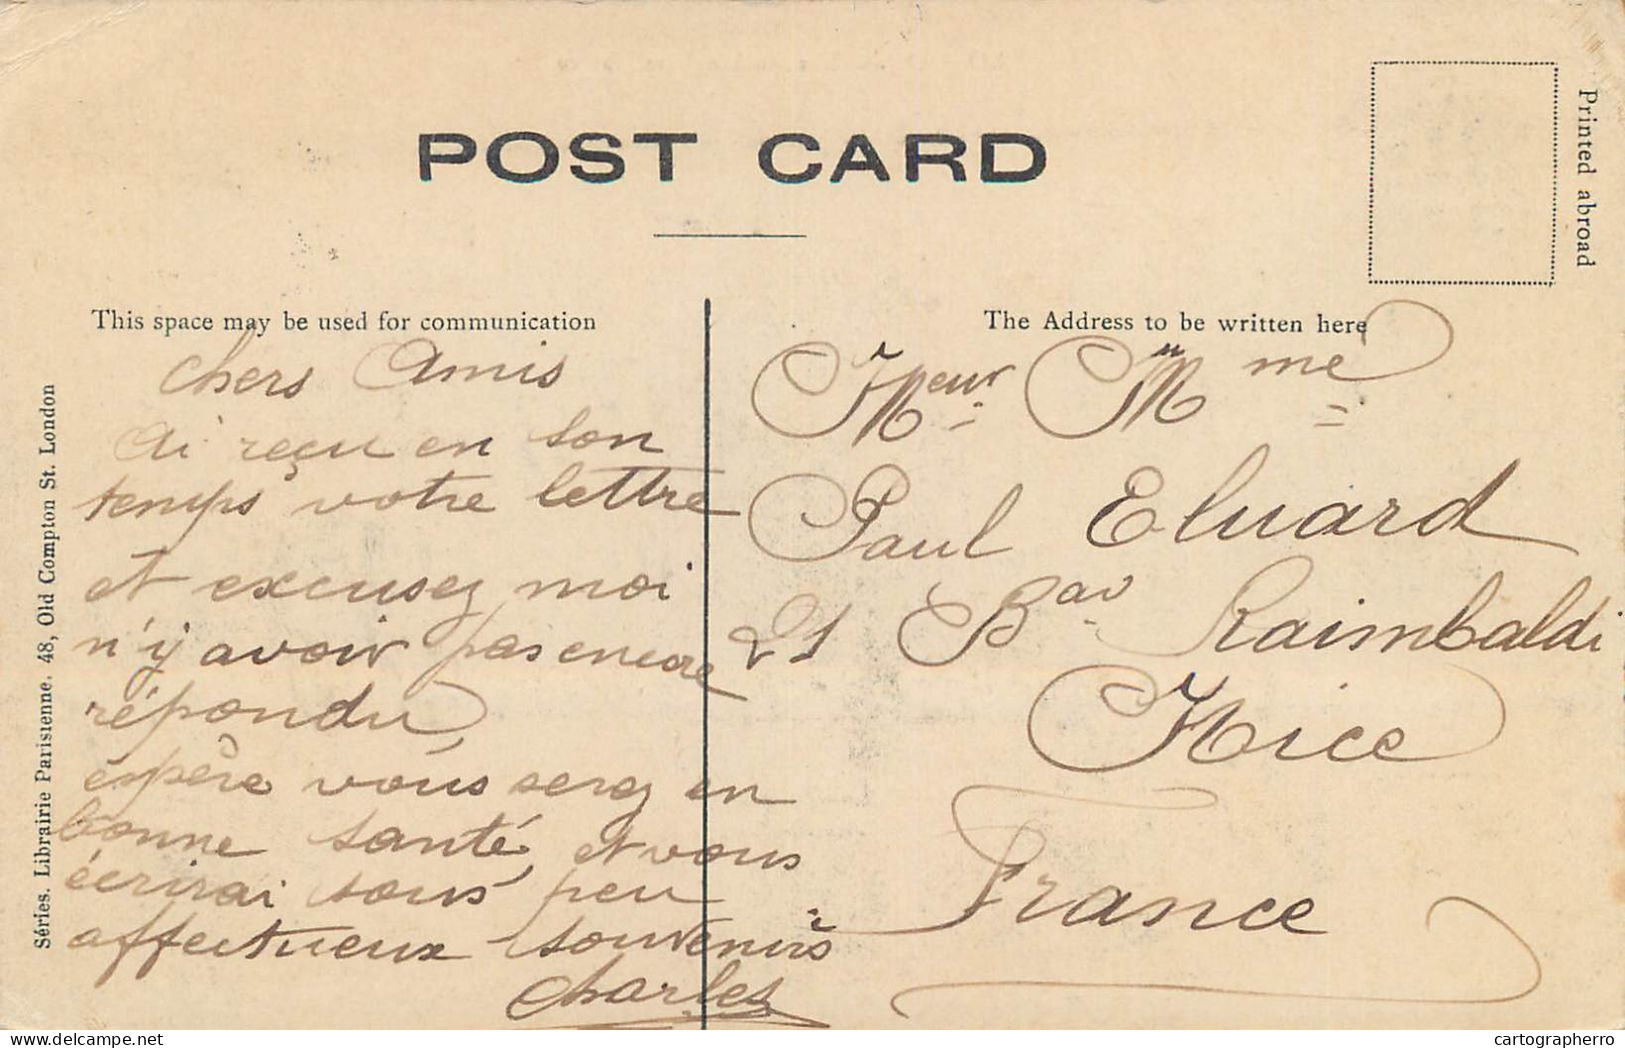 POST CARD
Printed abroad
This space may be used for communication
The Address to be written here
Séries. Librairie Parisienne. 48, Old Compton St. London
chers Amis
ai reçu en son
temps votre lettre
et excusez moi
n'y avoir pas encore
répondu,
espère vous serez en
bonne santé, et vous
écrirai sous peu
affectueux souvenirs
Charles
Meur M me
Paul Eluard
21 Bav Raimbaldi
Nice
France
cartographerro
delcampe.net